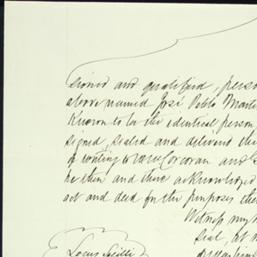 signed and qualified, perso
above named José Pablo Monte
Known to be the identical person
signed, sealed and delivered the
of writing were Corcoran and
he then and there acknowledged
act and deed for the purposes the
Witness my
Seal, at
Locus Sigilli